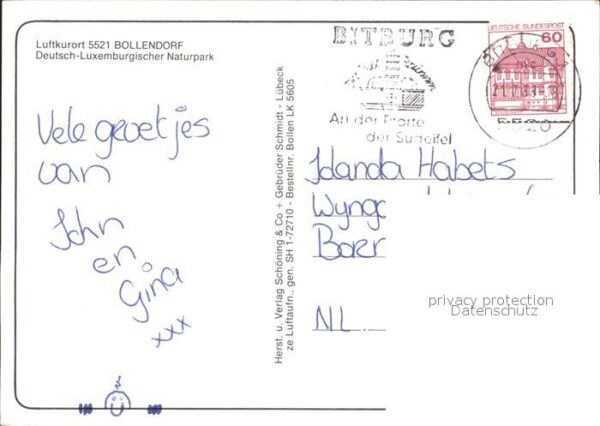 Luftkurort 5521 BOLLENDORF
Deutsch-Luxemburgischer Naturpark
Vele groetjes
van
John
en
Gina
xxx
Herst. u. Verlag Schöning & Co + Gebrüder Schmidt - Lübeck
ze Luftaufn., gen. SH 1-72710 - Bestellnr. Bollen LK 5605
BITBURG
An der Pforte
der Südeifel
DEUTSCHE BUNDESPOST
60
5520
Jolanda Habets
Wyng
Baer
NL
privacy protection
Datenschutz